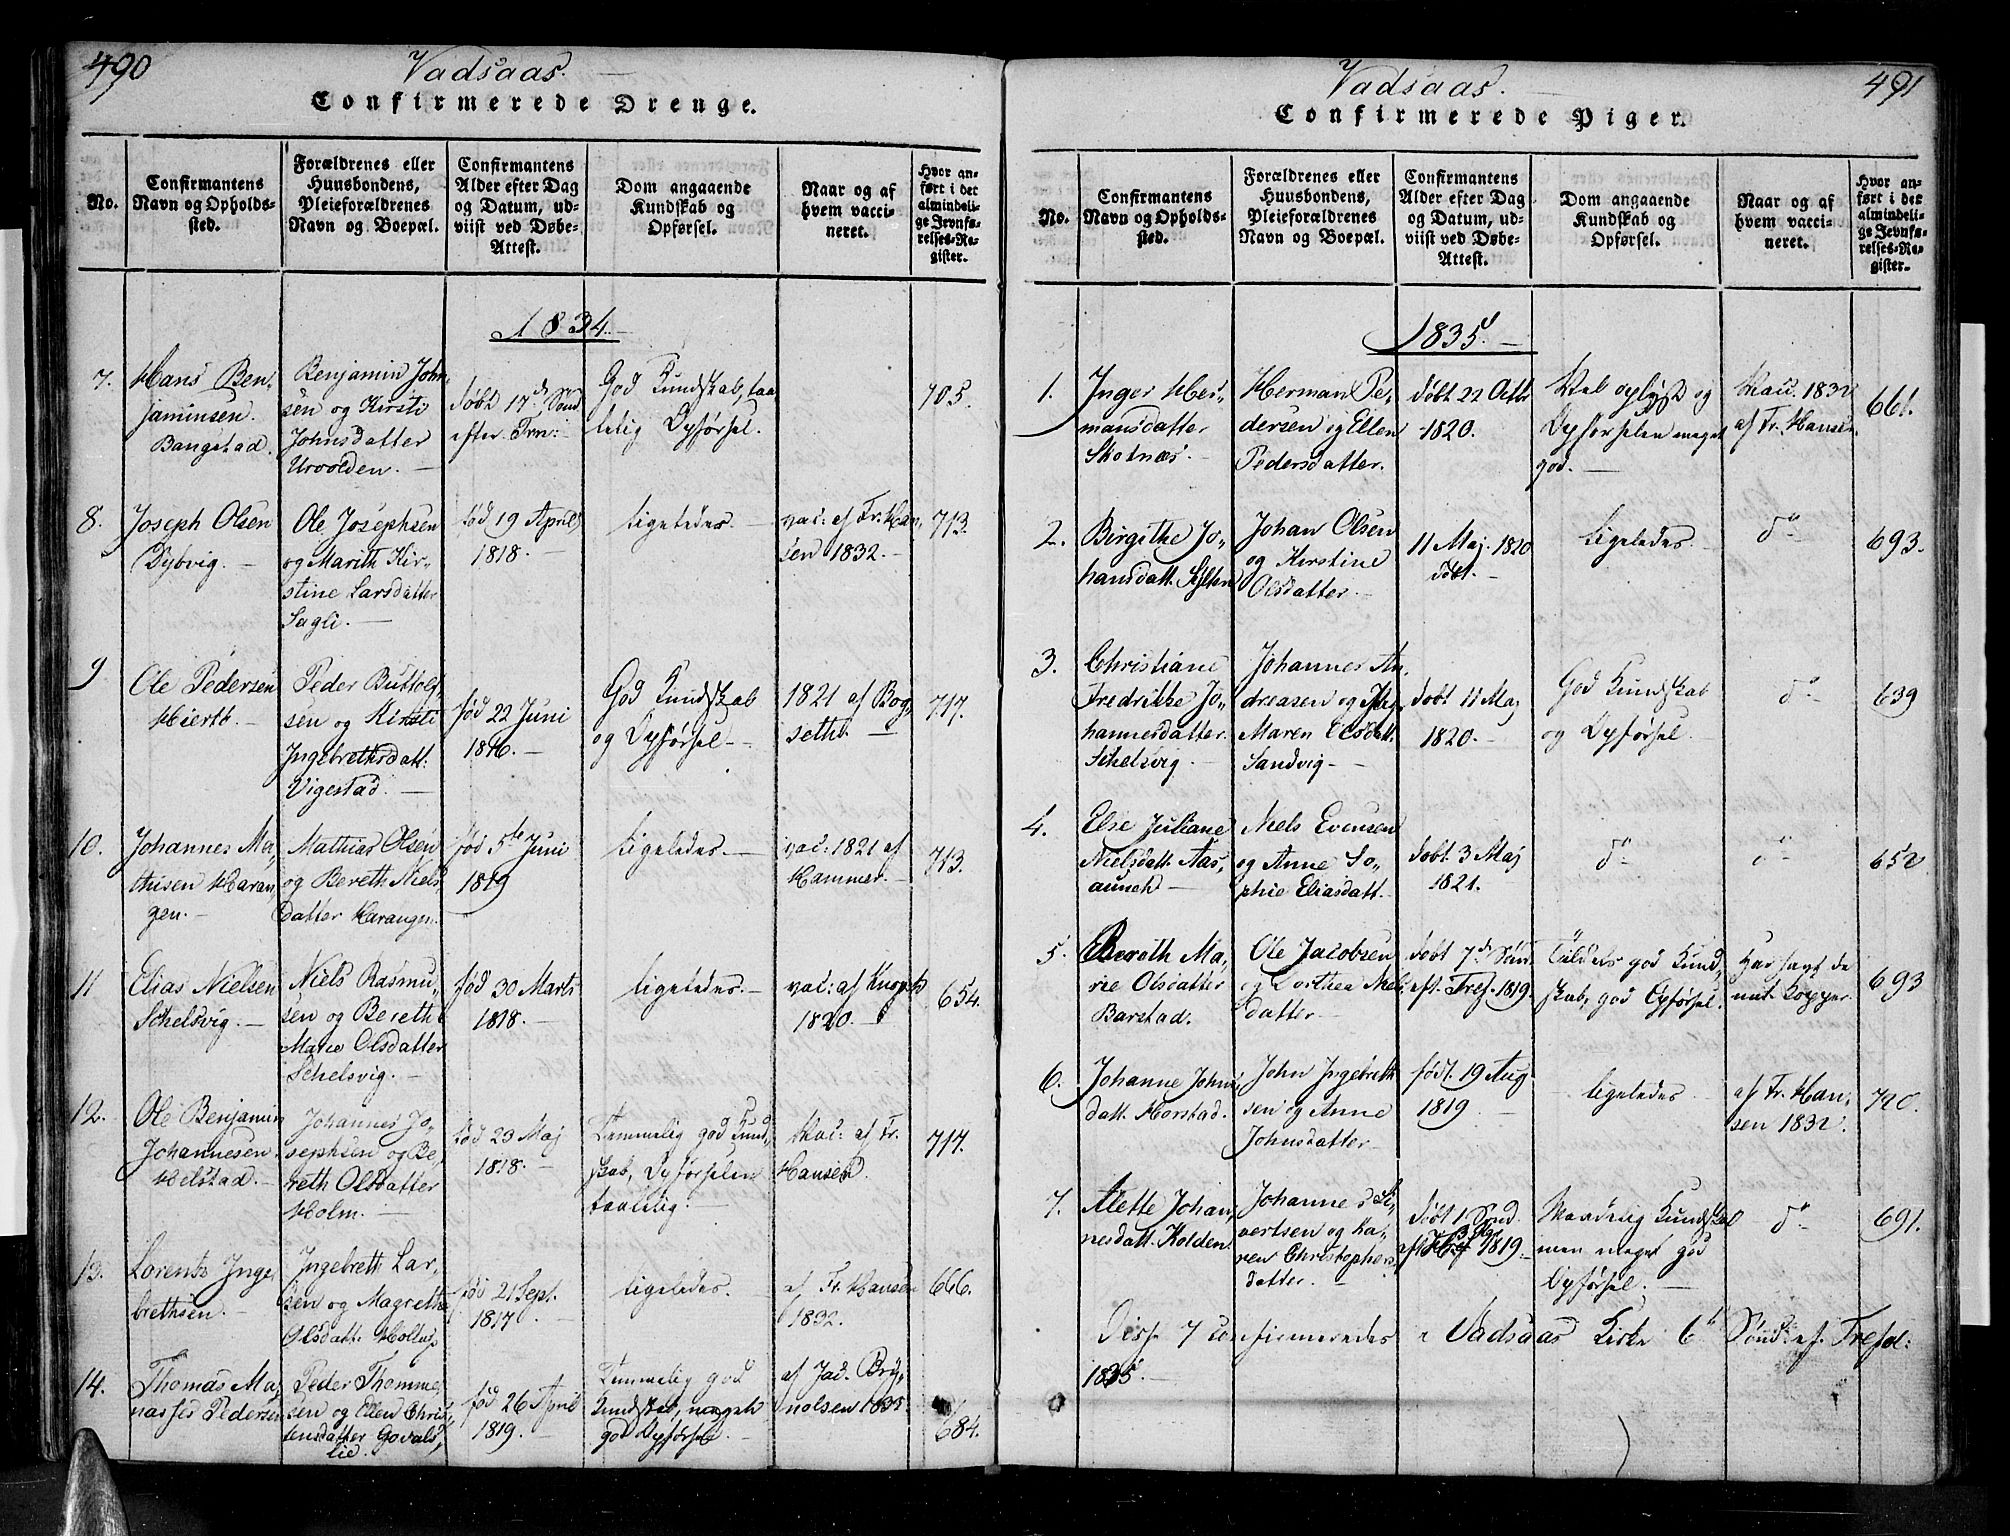 490
Vadsaas.
Confirmerede Drenge.
No.
Confirmantens
Navn og Opholds-
sted.
Forældrenes eller
Huusbondens,
Pleieforældrenes
Navn og Boepæl.
Confirmantens
Alder efter Dag
og Datum, ud-
viist ved Døbe-
Attest.
Dom angaaende
Kundskab og
Opførsel.
Naar og af
hvem vacci-
neret.
Hvor an-
ført i det
almindeli-
ge Jevnfø-
relses-Re-
gister.
1834.
7.
Hans Ben-
jaminsen.
Bangstad.
Benjamin John-
sen og Kirsti
Johnsdatter
Urvolden.
døbt 17de Sønd
efter Trin:
God Kundskab, taa-
lelig Opførsel.
705.
8.
Joseph Olsen
Dybvig.
Ole Josephsen
og Marith Kir-
stine Larsdatter
Sagli.
fød 19 April
1818.
ligeledes.
vac: af Fr. Han-
sen 1832.
713.
9
Ole Pedersen
Hierth.
Peder Buttolf-
sen og Kirsti
Ingebrethsdatt:
Vigestad.
fød 22 Juni
1816.
God Kundskab
og Opførsel.
1821 af Bog-
seth.
717.
10.
Johannes Ma-
thisen Haran-
gen.
Mathias Olsen
og Bereth Niels
datter Harangen.
fød 5te Juni
1819
ligeledes.
vac: 1821 af
Hammer.
713.
11
Elias Nielsen
Schelsvig.
Niels Rasmu-
sen og Berethe
Marie Olsdatter
Schelsvig.
fød 30 Marts
1818.
ligeledes.
vac: af
1820.
654.
12.
Ole Benjamin
Johannesen
Helstad.
Johannes Jo-
sephsen og Be-
reth Olsdatter
Holm.
fød 23 Maj
1818.
Temmelig god Kund-
skab, Opførselen
taalelig.
Vac: af Fr.
Hansen.
717.
13.
Lorents Inge-
brethsen.
Ingebreth Lar-
sen og Magrethe
Olsdatt.
fød 21 Sept.
1817.
ligeledes.
af Fr. Hansen
1832.
666.
14.
Thomas Ma-
nasses Pedersen
Peder Thomme-
sen og Ellen Chris-
tensdatter Govals-
lie.
fød 26 April
1819.
Temmelig god
Kundskab, meget
god Opførsel
af Jac. Bry-
nolsen 1835
684.
491
Vadsaas.
Confirmerede Piger.
No.
Confirmantens
Navn og Opholds-
sted.
Forældrenes eller
Huusbondens,
Pleieforældrenes
Navn og Boepæl.
Confirmantens
Alder efter Dag
og Datum, ud-
viist ved Døbe-
Attest.
Dom angaaende
Kundskab og
Opførsel.
Naar og af
hvem vacci-
neret.
Hvor an-
ført i det
almindeli-
ge Jevnfø-
relses-Re-
gister.
1835.
1.
Inger Her-
mansdatter
Skotnæs.
Herman Pe-
dersen og Ellen
Pedersdatter.
døbt 22 Octbr
1820.
Vel oplyst og
Opførselen meget
god.
Vac. 1832
af Fr. Hansen.
661.
2.
Birgithe Jo-
hansdatt. Sylten
Johan Olsen
og Kirstine
Olsdatter.
11 Maj 1820
døbt.
ligeledes.
do
693.
3.
Christiane
Fredrikke Jo-
hannesdatter.
Schelsvig.
Johannes An-
dreasen og
Maren Elsdatt.
Sandvig.
døbt 11 Maj
1820.
God Kundskab
og Opførsel.
do
639
4.
Else Juliane
Nielsdatt. Aas-
aunet
Niels Evensen
og Anne So-
phie Eliasdatt.
døbt 3 Maj
1821.
do
do
652
5.
Bereth Ma-
rie Olsdatter
Barstad.
Ole Jacobsen
og Dorthea Niels
datter.
døbt 7de Sønd
eft. Tref. 1819.
Tildels god Kund-
skab, god Opførsel.
Har havt de
nat. Kopper.
693
6.
Johanne Johns-
datt. Horstad.
John Ingebreth
sen og Anne
Johnsdatter
født 19 Aug
1819
ligeledes
af Fr. Han-
sen 1832.
720.
7.
Alette Johan-
nesdatt. Kolden.
Johannes Si-
vertsen og Ka-
ren Christophers
datter.
døbt 1 Sønd.
eft. 1819.
Maadelig Kundskab
men meget god
Opførsel.
do
691.
Disse 7 confirmeredes i Vadsaas Kirke 6te Sønd. ef. Trefol:
1835.